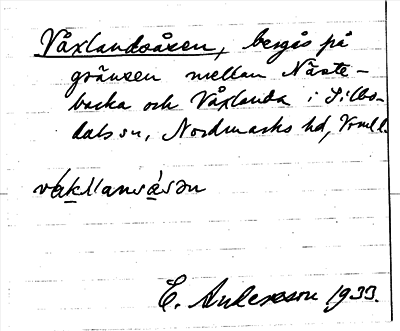 Våxlandsåsen, bergås på
gränsen mellan Näste-
backa och Våxlanda i Silbo-
dals sn, Nordmarks hd, Vrml.
våkslansåsən
E. Andersson 1933.